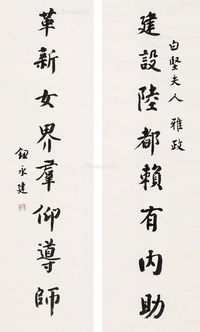 白堅夫人 雅政
建設陸都賴有內助
革新女界羣仰導師
鈕永建